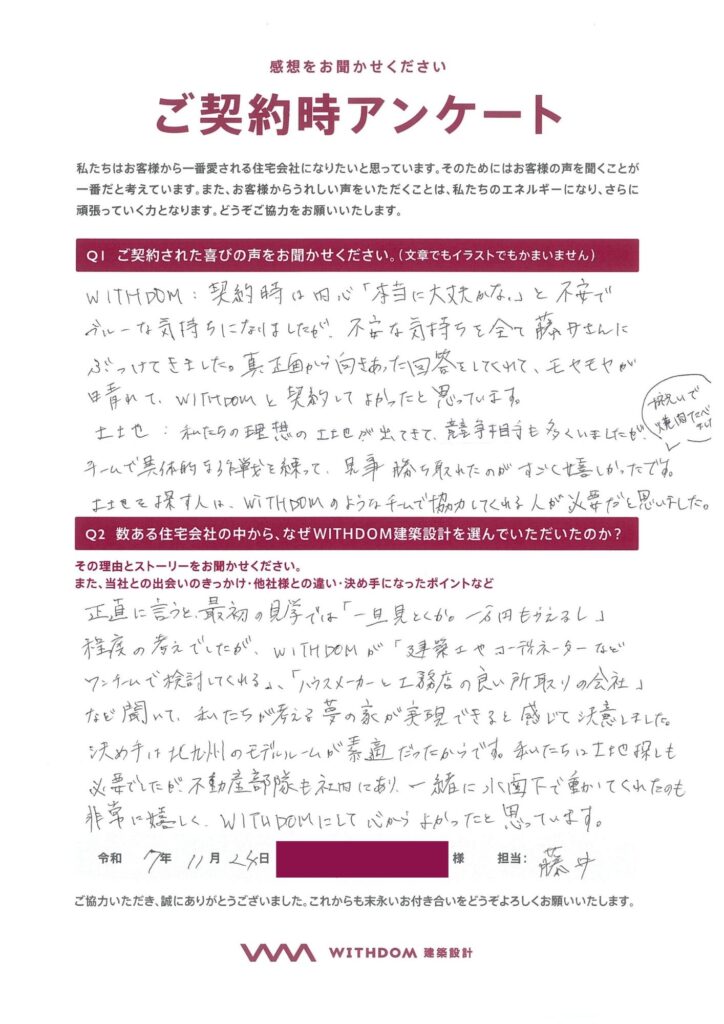 感想をお聞かせください
ご契約時アンケート
私たちはお客様から一番愛される住宅会社になりたいと思っています。そのためにはお客様の声を聞くことが
一番だと考えています。また、お客様からうれしい声をいただくことは、私たちのエネルギーになり、さらに
頑張っていく力となります。どうぞご協力をお願いいたします。
Q1 ご契約された喜びの声をお聞かせください。(文章でもイラストでもかまいません)
WITHDOM：契約時は内心「本当に大丈夫かな」と不安で
ブルーな気持ちになりましたが、不安な気持ちを全て藤井さんに
ぶつけてきました。真正面から向きあった回答をしてくれて、モヤモヤが
晴れて、WITHDOMと契約してよかったと思っています。
土地：私たちの理想の土地が出てきて、競争相手も多くいましたが、
祝いで
焼肉
チームで具体的な作戦を練って、見事勝ち取れたのがすごく嬉しかったです。
土地を探す人は、WITHDOMのようなチームで協力してくれる人が必要だと思いました。
Q2 数ある住宅会社の中から、なぜWITHDOM建築設計を選んでいただいたのか？
その理由とストーリーをお聞かせください。
また、当社との出会いのきっかけ・他社様との違い・決め手になったポイントなど
正直に言うと、最初の見学では「一旦見とくか。一万円もらえるし」
程度の考えでしたが、WITHDOMが「建築士やコーディネーターなど
ワンチームで検討してくれる」、「ハウスメーカーと工務店の良い所取りの会社」
など聞いて、私たちが考える夢の家が実現できると感じて決意しました。
決め手は北九州のモデルルームが素適だったからです。私たちは土地探しも
必要でしたが、不動産部隊も社内にあり、一緒に水面下で動いてくれたのも
非常に嬉しく、WITHDOMにして心からよかったと思っています。
令和 7年 11月 24日 様 担当：藤井
ご協力いただき、誠にありがとうございました。これからも末永いお付き合いをどうぞよろしくお願いいたします。
WITHDOM 建築設計